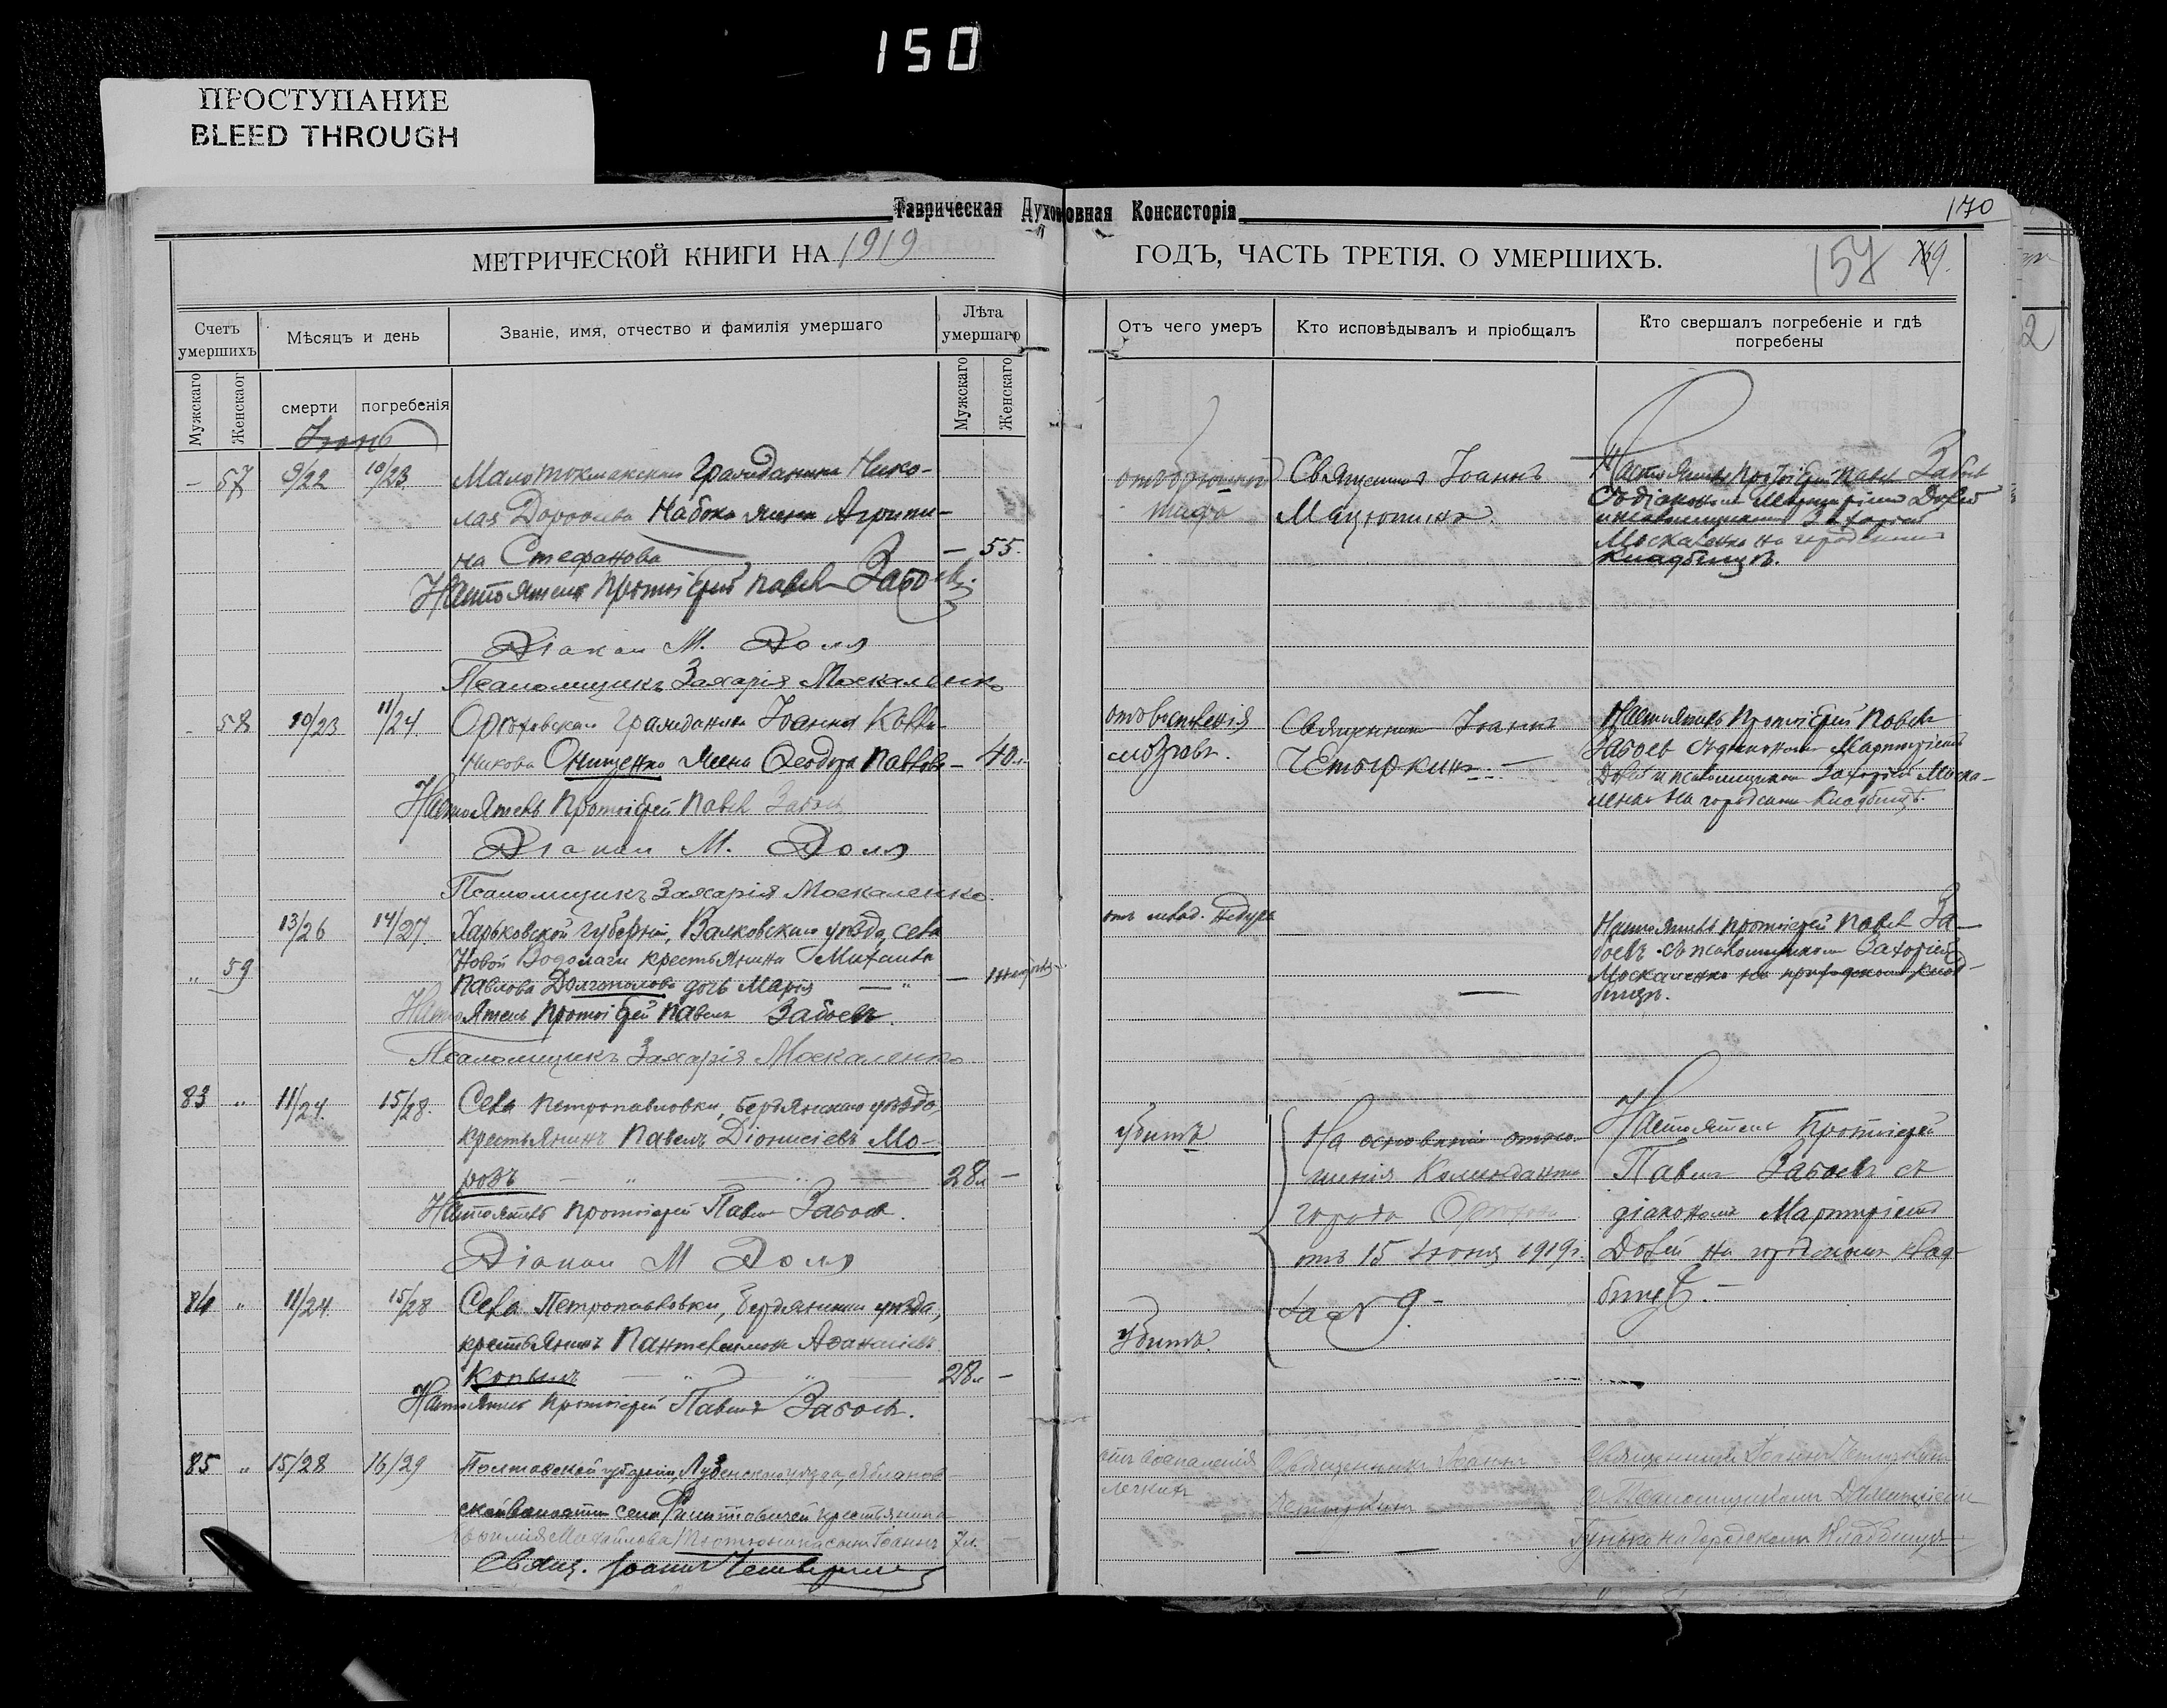 150
ПРОСТУПАНИЕ
BLEED THROUGH
Таврическая Духовная Консисторія
170
МЕТРИЧЕСКОЙ КНИГИ НА 1919
ГОДЪ, ЧАСТЬ ТРЕТІЯ. О УМЕРШИХЪ.
157
169.
Счетъ умершихъ
Мѣсяцъ и день
Званіе, имя, отчество и фамилія умершаго
Лѣта умершаго
Отъ чего умеръ
Кто исповѣдывалъ и пріобщалъ
Кто свершалъ погребеніе и гдѣ погребены
Мужскаго
Женскаог
смерти
погребенія
Мужскаго
Женскаго
Іюнь
– 57 9/22 10/23 Малотокмакскаго гражданина Нико-
лая Набока жена Агрипи-
на Стефанова — 55.
Настоятель Протоіерей Павелъ Забоевъ
Діакон М. Доля
Псаломщикъ Захарія Москаленко
тифа
Священникъ Іоаннъ
Настоятель Протоіерей Павелъ
Москаленко на городскомъ
кладбищѣ.
58 10/23 11/24 Орѣховскаго гражданина Іоанна
Онищенко жена Ѳеодора Павлова — 40.
Настоятель Протоіерей Павелъ Забоевъ
Діакон М. Доля
Псаломщикъ Захарія Москаленко.
отъ воспаленія
мозговъ.
Священникъ Іоаннъ
Четыркинъ. —
Настоятель Протоіерей Павелъ
Забоевъ съ діакономъ Мартиріемъ
Долей и псаломщикомъ Захаріей Моска-
ленко на городскомъ кладбищѣ.
13/26 14/27. Харьковской губерніи, Валковскаго уѣзда, села
Новой Водолаги крестьянина Михаила
„ 59 Павлова дочь Марія — „ —
Настоятель Протоіерей Павелъ Забоевъ.
Псаломщикъ Захарія Москаленко
отъ млад. недуга
Настоятель протоіерей Павелъ За-
боевъ съ псаломщикомъ Захаріей
Москаленко на приходскомъ клад-
бищѣ.
83 „ 11/24. 15/28. Села Петропавловки, Бердянскаго уѣзда,
крестьянинъ Павелъ Діонисіевъ Мо-
розъ 28л —
Настоятель протоіерей Павелъ Забоевъ.
Діакон М Доля
убитъ
На основаніи отно-
шенія Коменданта
города Орѣхова
отъ 15 іюня 1919 г.
за № 9. –
Настоятель Протоіерей
Павелъ Забоевъ съ
діакономъ Мартиріемъ
Долей на городскомъ клад-
бищѣ. –
84 „ 11/24. 15/28 Села Петропавловки, Бердянскаго уѣзда,
крестьянинъ Пантелеимонъ Аѳанасіевъ
Копылъ 28л —
Настоятель протоіерей Павелъ Забоевъ.
убитъ.
85 „ 15/28 16/29 Полтавской губерніи, Лубенскаго уѣзда,
крестьянина
Михайлова сынъ Іоаннъ 7л.
Свящ. Іоаннъ
отъ воспаленія
легкихъ
Священникъ Іоаннъ
Священникъ Іоаннъ
съ Псаломщикомъ
на городскомъ кладбищѣ